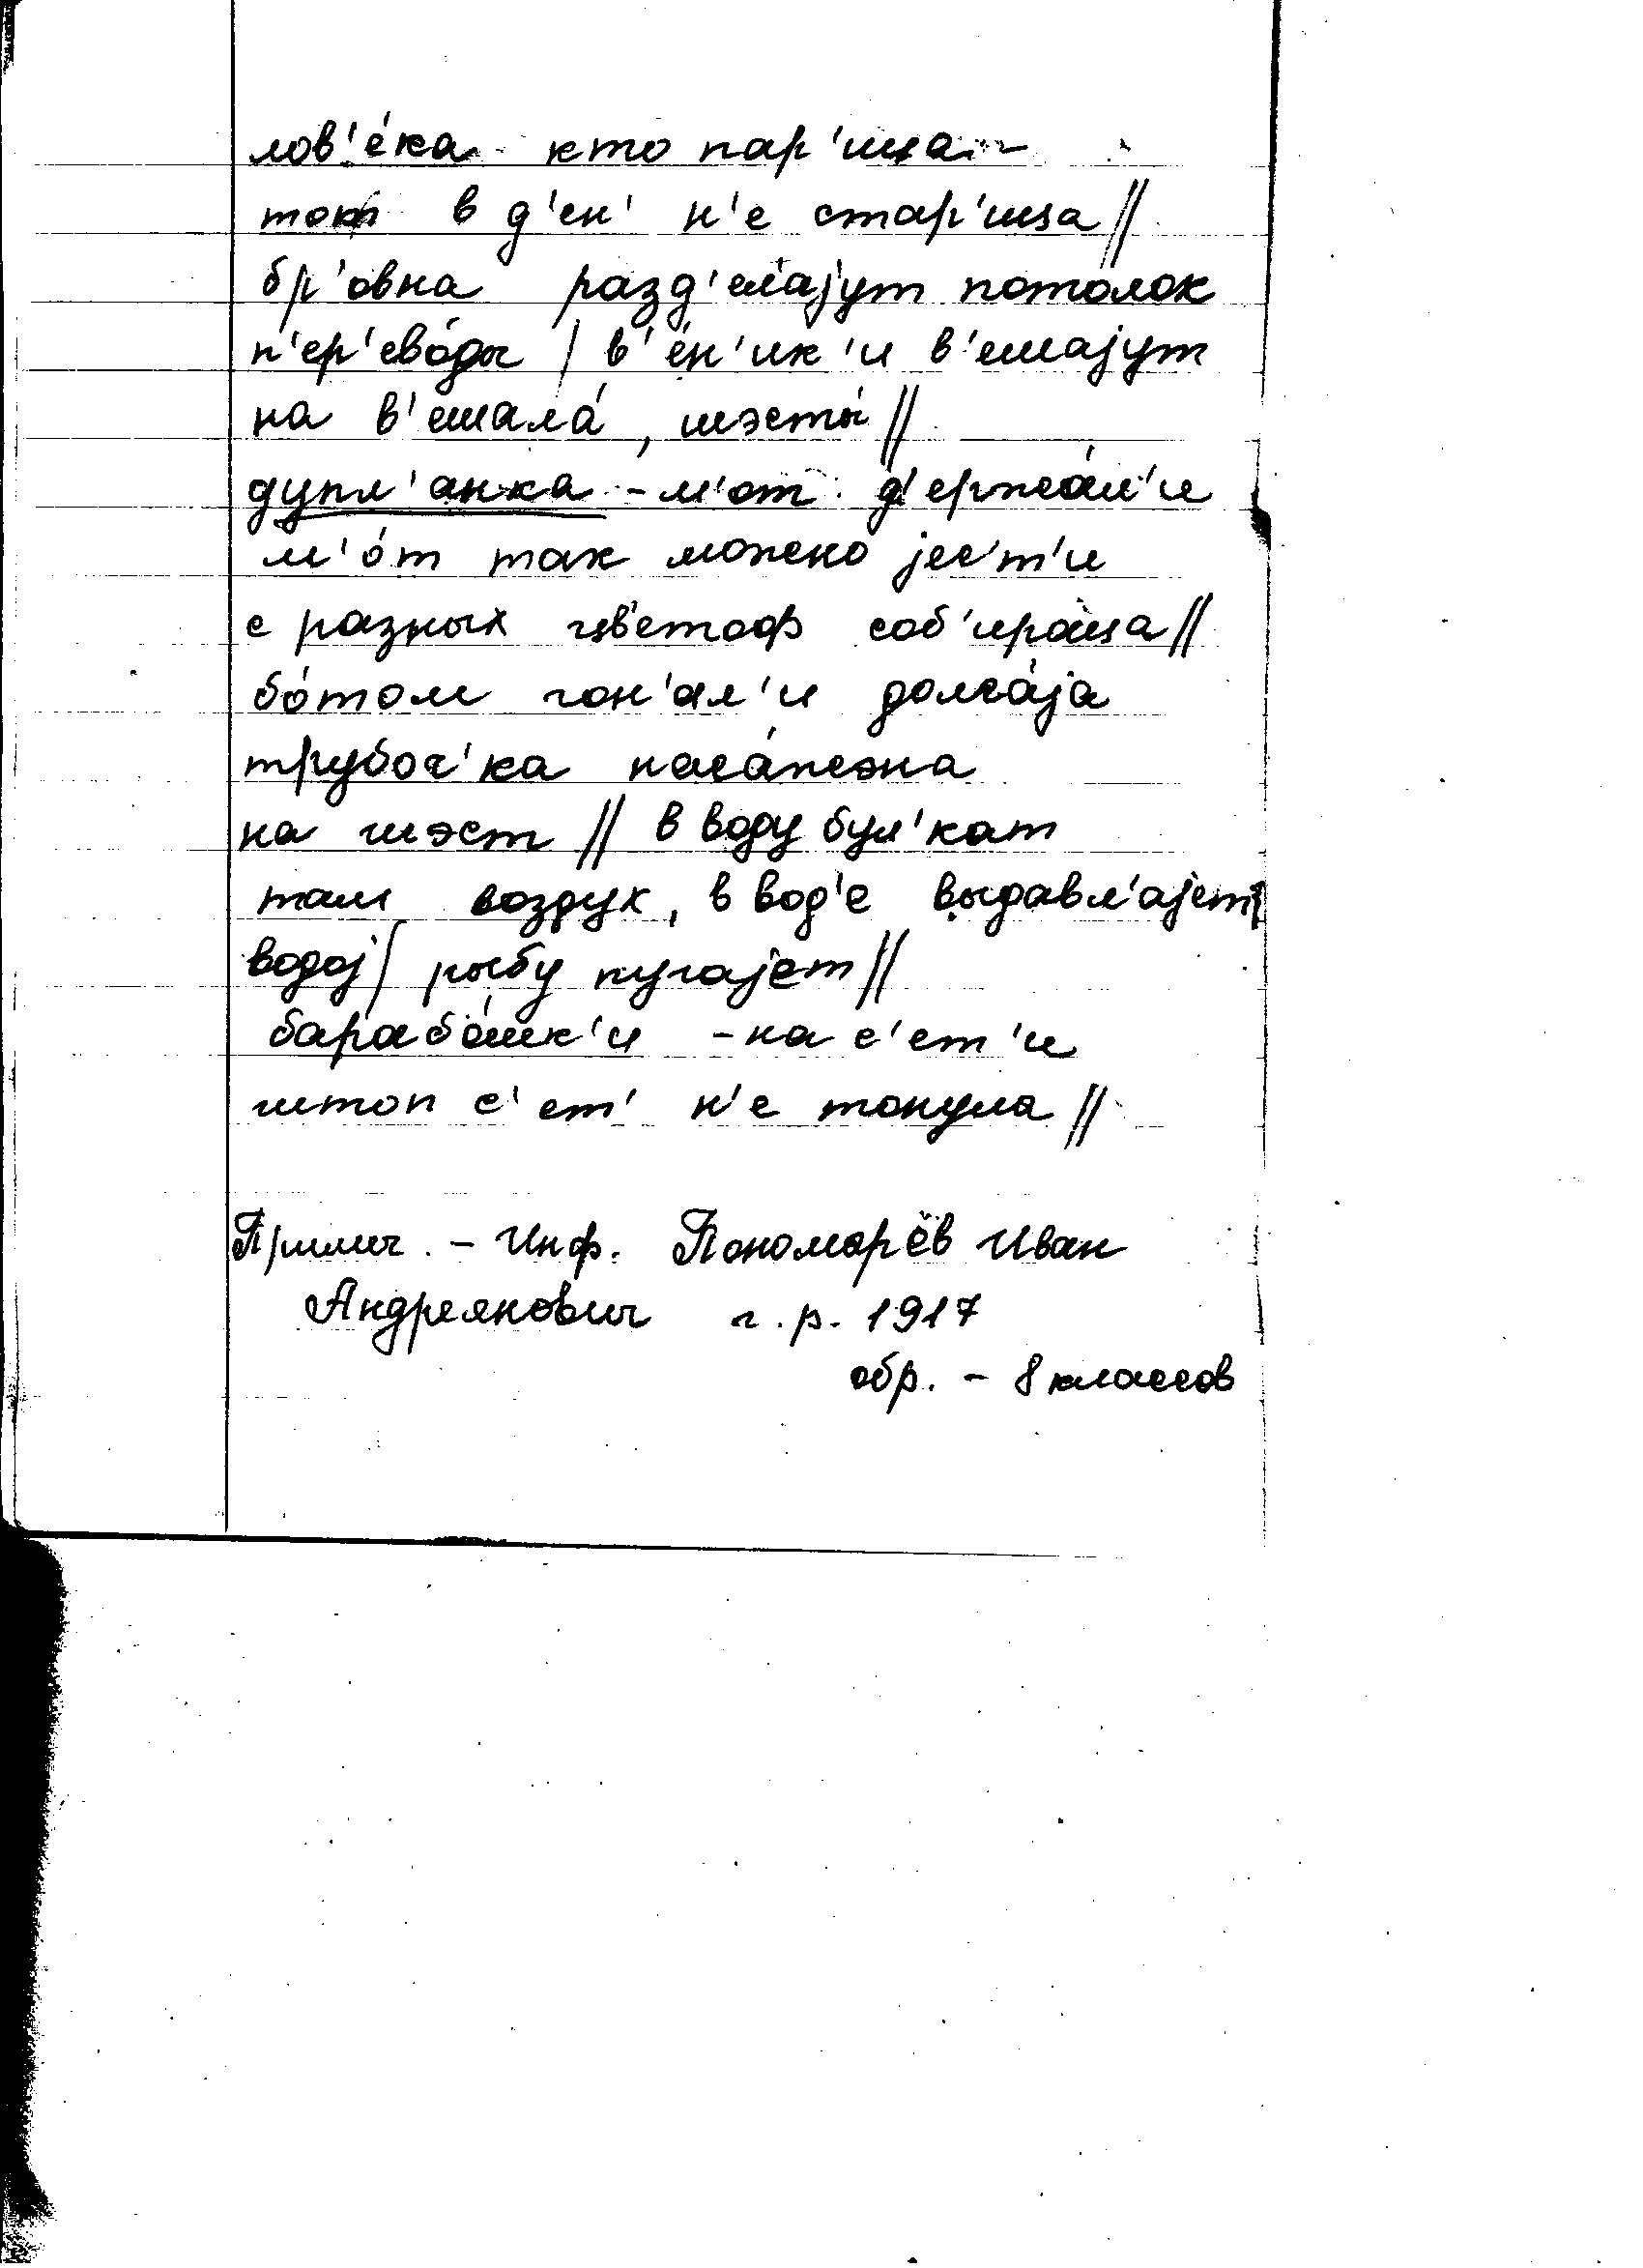 лов'е́ка кто пар'ица –
тот в д'ен' н'е стар'ица //
бр'овна разд'ел'ајут потолок
п'ер'ево́ды / в'е́н'ик'и в'ешајут
на в'ешала́, шэсты́ //
дупл'анка – м'от д'ержа́л'и
м'о́т так можно јес'т'и
с разных цв'етоф соб'ира́ца //
бо́том гон'ал'и долга́ја
трубоч'ка наса́жэна
на шэст // в воду бул'кат
там воздук, в вод'е выдавл'ајет
водој / рыбу пугајет //
бараба́шк'и – на с'ет'и
штоп с'ет' н'е тонула //
Примеч. – Инф. Пономарёв Иван
Андреянович г.р. 1917
обр. – 8 классов